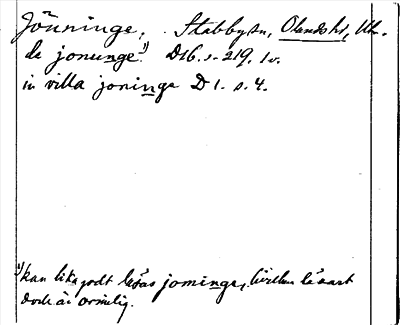 Jönninge, Stabby sn, Olandshd, Uhr.
de jonunge¹⁾ D16. s. 219. 1v.
in villa joninge D 1. s. 4.
¹⁾ kan lika godt läsas jominge, hvilken läsart
dock är orimlig.